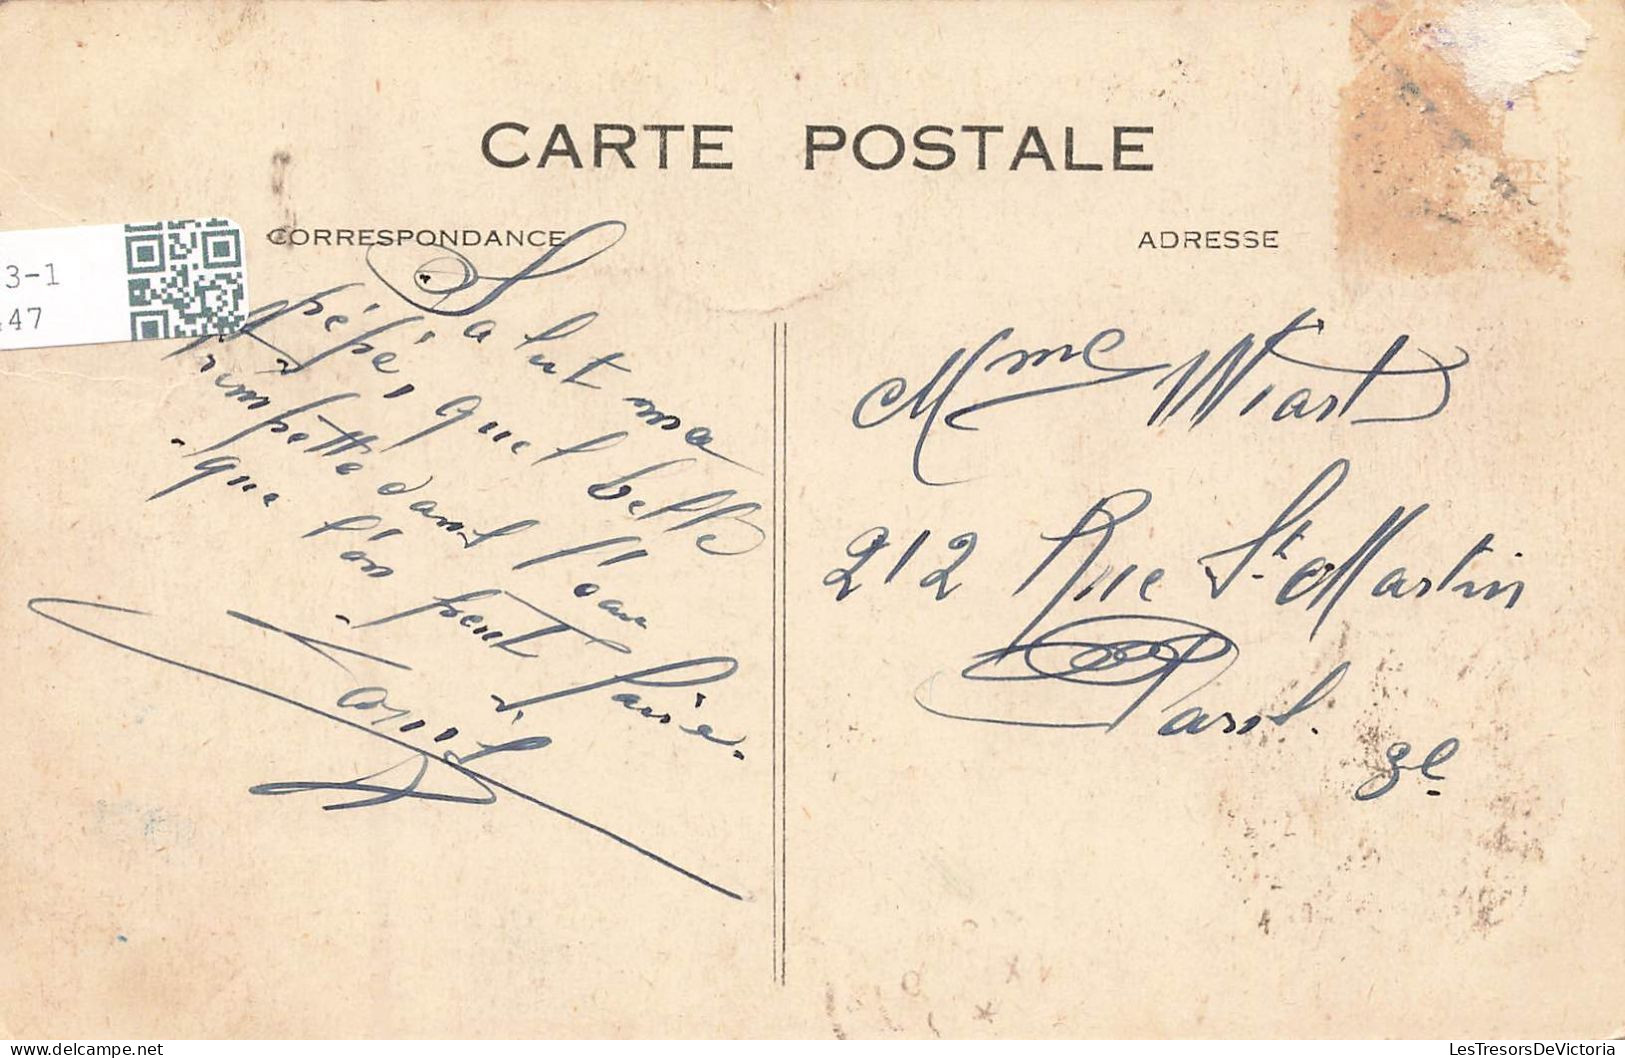 CARTE POSTALE
CORRESPONDANCE
ADRESSE
3-1
47
Salut ma
pépé, quel belle
trempette dans l'eau
que l'on peut faire.
Mme Wiart
212 Rue St. Martin
Paris.
3e
LesTresorsDeVictoria